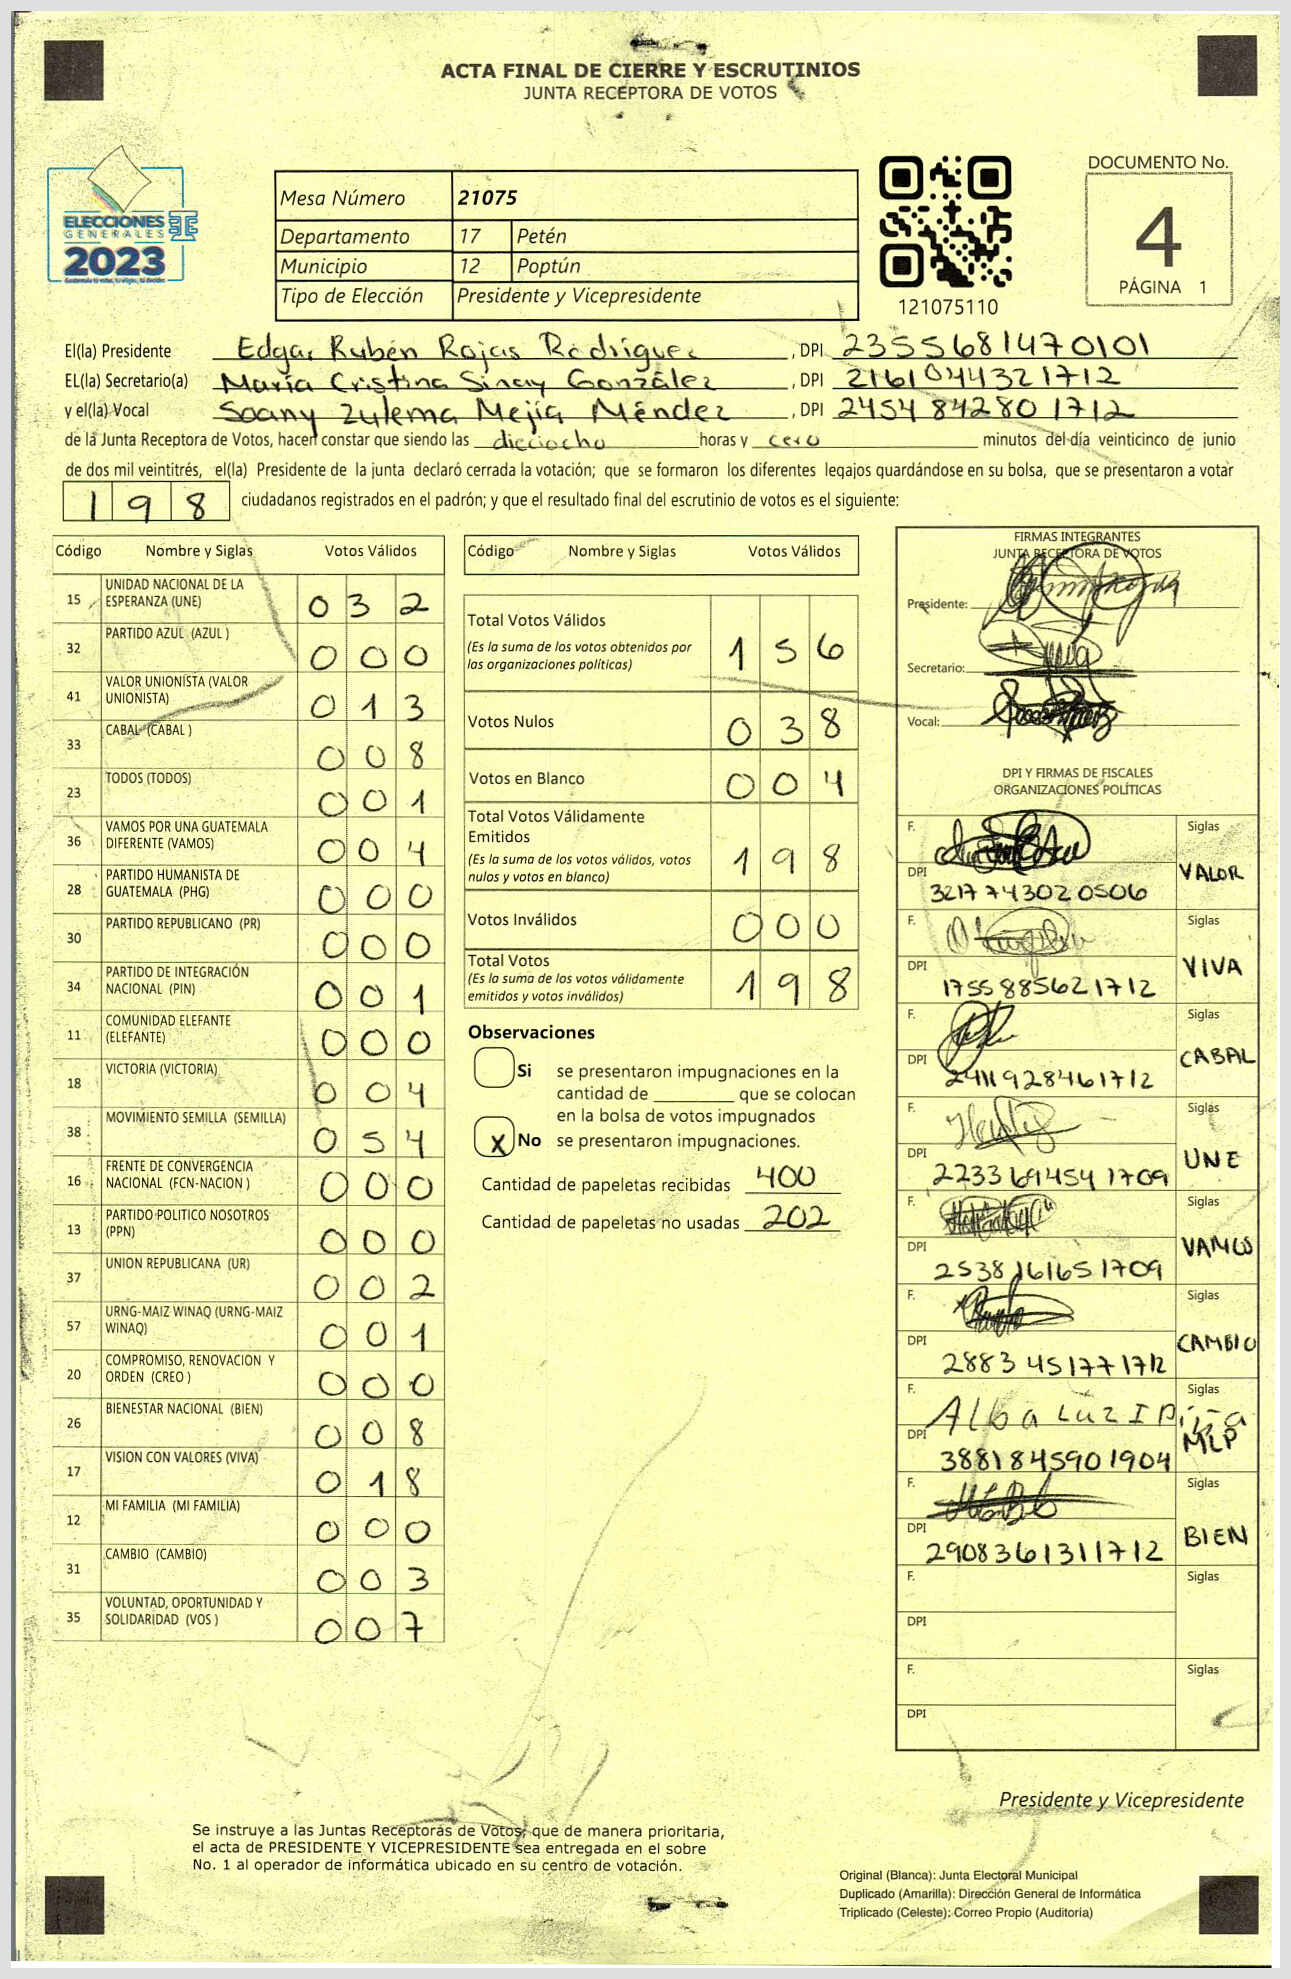 ACTA FINAL DE CIERRE Y ESCRUTINIOS
JUNTA RECEPTORA DE VOTOS
ELECCIONES
GENERALES
2023
Mesa Número 21075
Departamento 17 Petén
Municipio 12 Poptún
Tipo de Elección Presidente y Vicepresidente
121075110
DOCUMENTO No.
4
PÁGINA 1
El(la) Presidente Edgar Rubén Rojas Rodríguez, DPI 2355681470101
EL(la) Secretario(a) María Cristina Sinay González, DPI 2161044321712
y el(la) Vocal Soany Zulema Mejía Méndez, DPI 2454842801712
de la Junta Receptora de Votos, hacen constar que siendo las dieciocho horas y cero minutos del día veinticinco de junio
de dos mil veintitrés, el(la) Presidente de la junta declaró cerrada la votación; que se formaron los diferentes legajos guardándose en su bolsa, que se presentaron a votar
198 ciudadanos registrados en el padrón; y que el resultado final del escrutinio de votos es el siguiente:
Código Nombre y Siglas Votos Válidos
15 UNIDAD NACIONAL DE LA
ESPERANZA (UNE) 032
32 PARTIDO AZUL (AZUL ) 000
41 VALOR UNIONISTA (VALOR
UNIONISTA) 013
33 CABAL (CABAL ) 008
23 TODOS (TODOS) 001
36 VAMOS POR UNA GUATEMALA
DIFERENTE (VAMOS) 004
28 PARTIDO HUMANISTA DE
GUATEMALA (PHG) 000
30 PARTIDO REPUBLICANO (PR) 000
34 PARTIDO DE INTEGRACIÓN
NACIONAL (PIN) 001
11 COMUNIDAD ELEFANTE
(ELEFANTE) 000
18 VICTORIA (VICTORIA) 004
38 MOVIMIENTO SEMILLA (SEMILLA) 054
16 FRENTE DE CONVERGENCIA
NACIONAL (FCN-NACION ) 000
13 PARTIDO POLITICO NOSOTROS
(PPN) 000
37 UNION REPUBLICANA (UR) 002
57 URNG-MAIZ WINAQ (URNG-MAIZ
WINAQ) 001
20 COMPROMISO, RENOVACION Y
ORDEN (CREO ) 000
26 BIENESTAR NACIONAL (BIEN) 008
17 VISION CON VALORES (VIVA) 018
12 MI FAMILIA (MI FAMILIA) 000
31 CAMBIO (CAMBIO) 003
35 VOLUNTAD, OPORTUNIDAD Y
SOLIDARIDAD (VOS ) 007
Código Nombre y Siglas Votos Válidos
Total Votos Válidos 156
(Es la suma de los votos obtenidos por
las organizaciones políticas)
Votos Nulos 038
Votos en Blanco 004
Total Votos Válidamente
Emitidos 198
(Es la suma de los votos válidos, votos
nulos y votos en blanco)
Votos Inválidos 000
Total Votos 198
(Es la suma de los votos válidamente
emitidos y votos inválidos)
Observaciones
Si se presentaron impugnaciones en la
cantidad de ________ que se colocan
en la bolsa de votos impugnados
X No se presentaron impugnaciones.
Cantidad de papeletas recibidas 400
Cantidad de papeletas no usadas 202
FIRMAS INTEGRANTES
JUNTA RECEPTORA DE VOTOS
Presidente:
Secretario:
Vocal:
DPI Y FIRMAS DE FISCALES
ORGANIZACIONES POLÍTICAS
F. Siglas
DPI 3217743020506 VALOR
F. Siglas
DPI 1755885621712 VIVA
F. Siglas
DPI 2411928461712 CABAL
F. Siglas
DPI 2233694541709 UNE
F. Siglas
DPI 2538161651709 VAMOS
F. Siglas
DPI 2883451771712 CAMBIO
F. Alba Luz Siglas
DPI 3881845901904 MLP
F. Siglas
DPI 2908361311712 BIEN
F. Siglas
DPI
F. Siglas
DPI
Presidente y Vicepresidente
Se instruye a las Juntas Receptoras de Votos, que de manera prioritaria,
el acta de PRESIDENTE Y VICEPRESIDENTE sea entregada en el sobre
No. 1 al operador de informática ubicado en su centro de votación.
Original (Blanca): Junta Electoral Municipal
Duplicado (Amarilla): Dirección General de Informática
Triplicado (Celeste): Correo Propio (Auditoria)